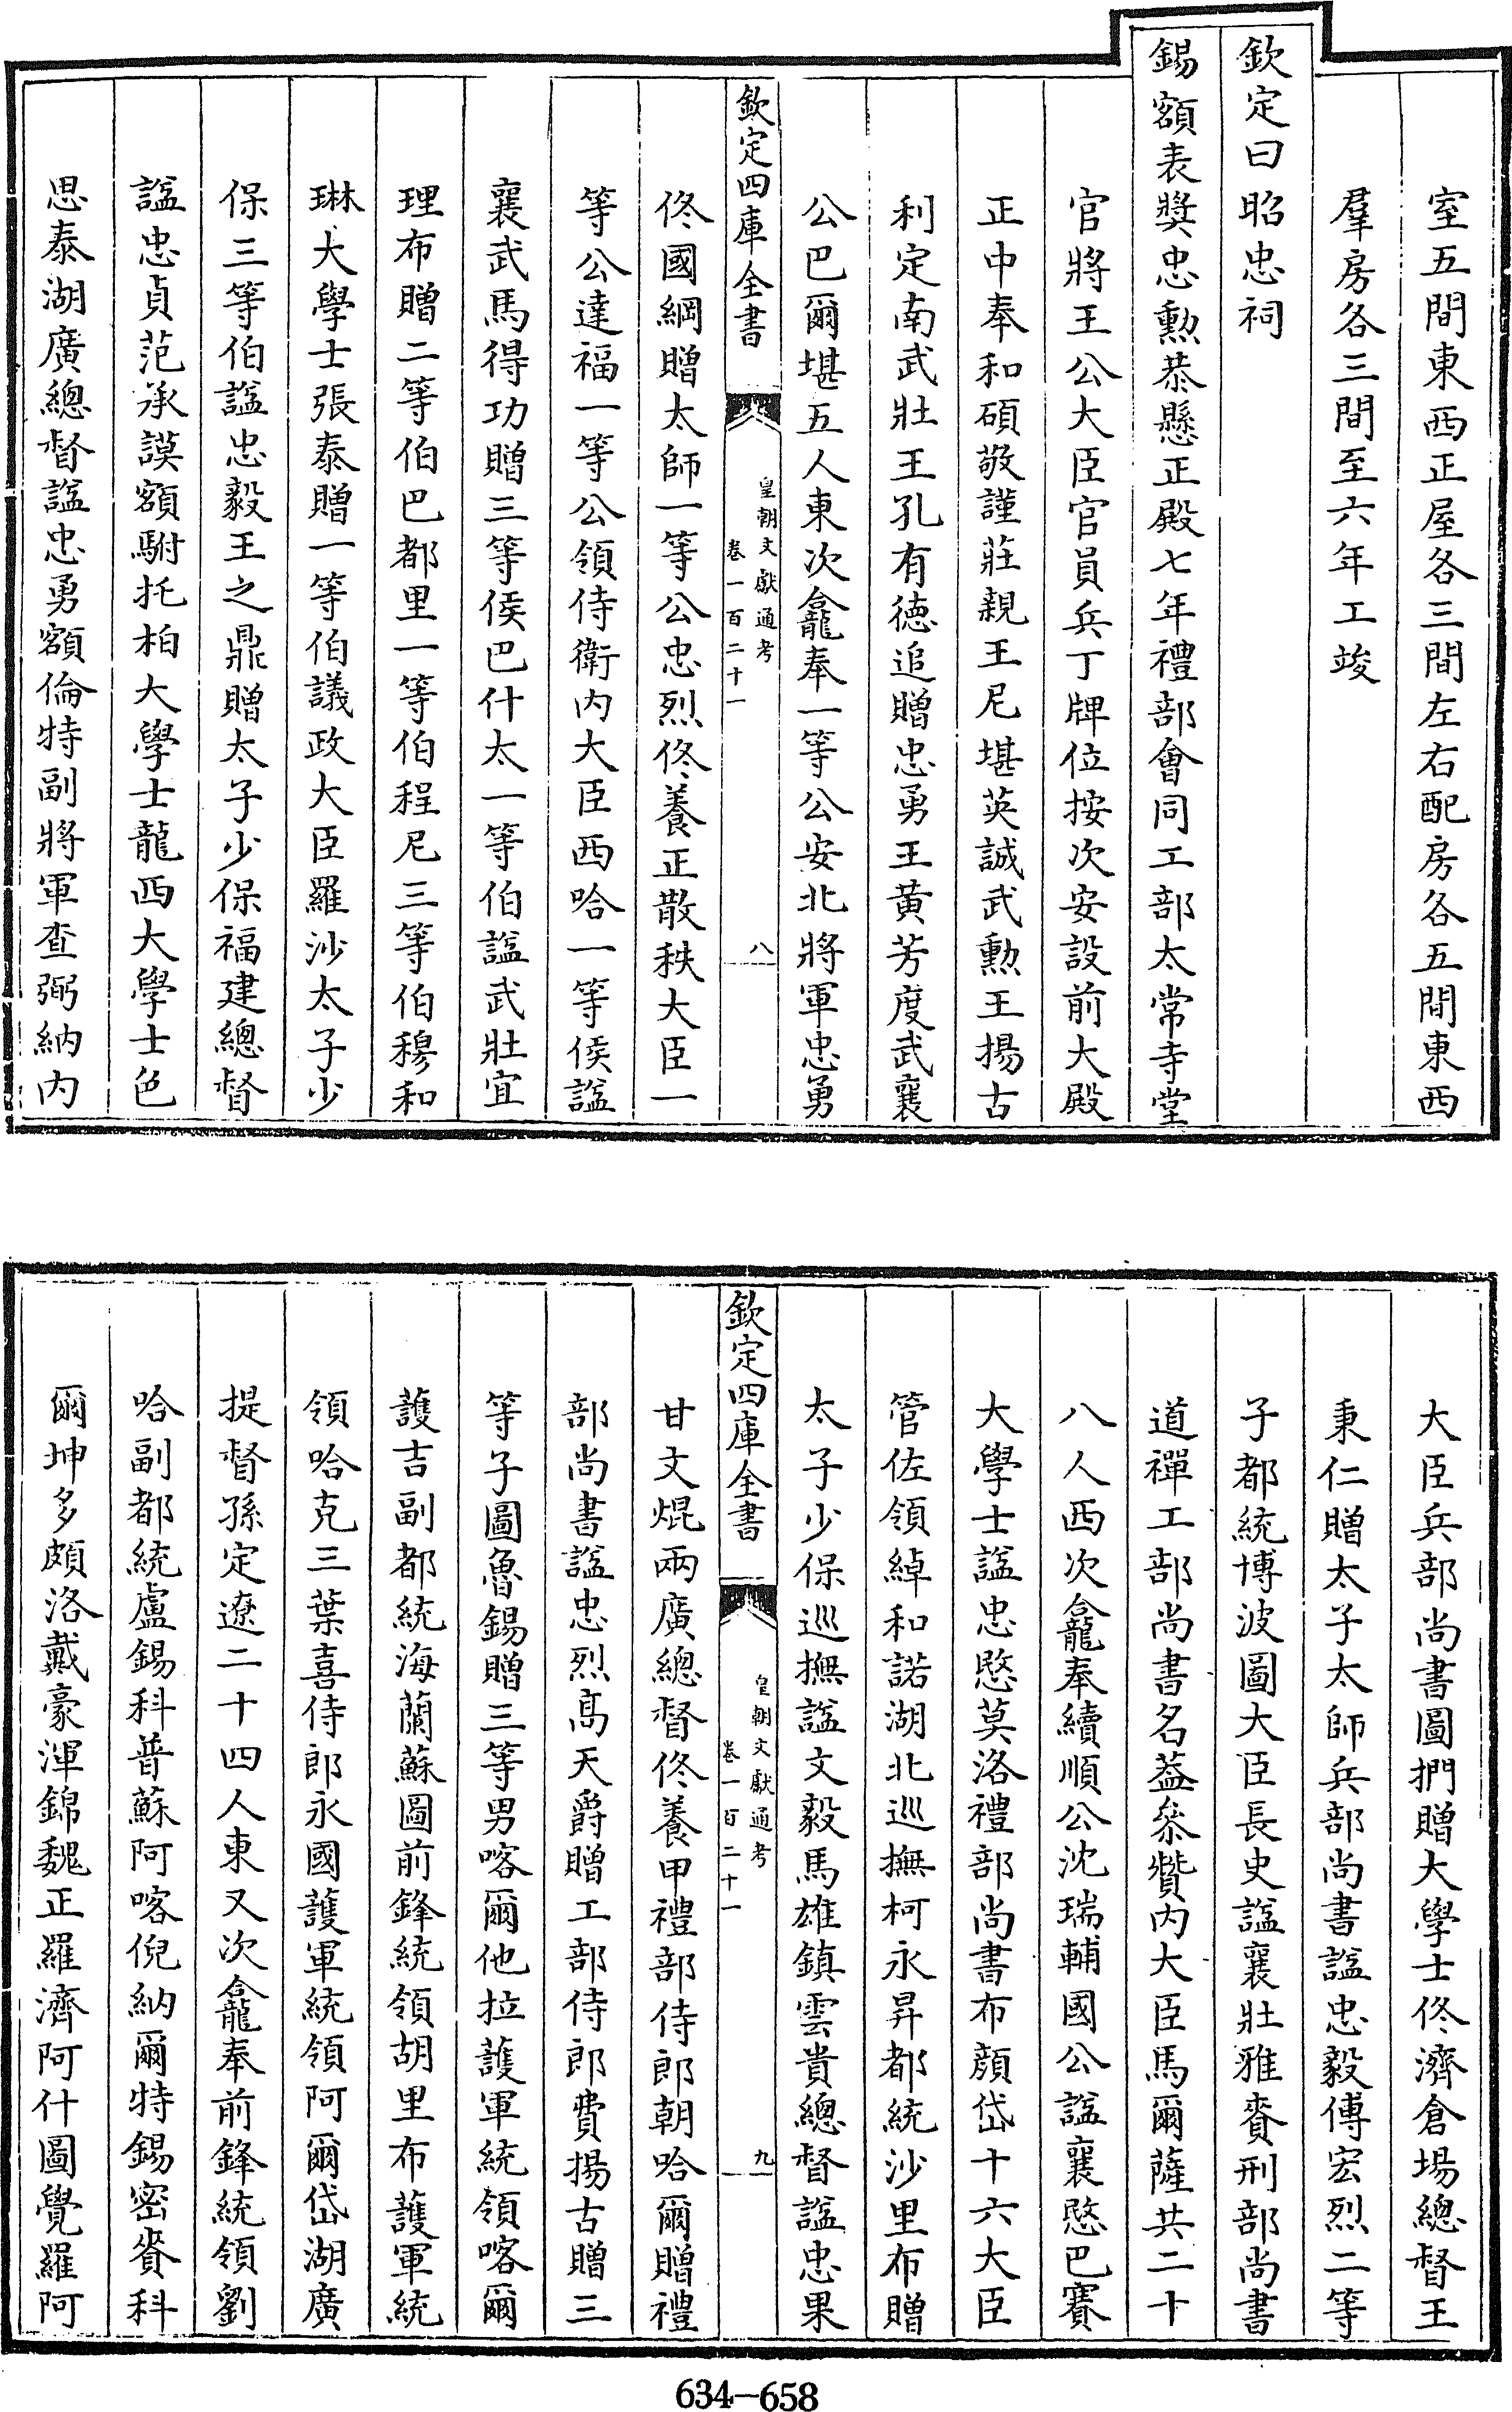 室五間東西正屋各三間左右配房各五間東西
羣房各三間至六年工竣
欽定曰昭忠祠
錫額表奬忠勲恭懸正殿七年禮部會同工部太常寺堂
官將王公大臣官員兵丁牌位按次安設前大殿
正中奉和碩敬謹莊親王尼堪英誠武勲王揚古
利定南武壯王孔有德追贈忠勇王黄芳度武襄
公巴爾堪五人東次龕奉一等公安北將軍忠勇
欽定四庫全書
皇朝文獻通考
卷一百二十一
八
佟國綱贈太師一等公忠烈佟養正散秩大臣一
等公達福一等公領侍衛内大臣西哈一等侯諡
襄武馬得功贈三等侯巴什太一等伯諡武壯宜
理布贈二等伯巴都里一等伯程尼三等伯穆和
琳大學士張泰贈一等伯議政大臣羅沙太子少
保三等伯諡忠毅王之鼎贈太子少保福建總督
諡忠貞范承謨額駙托柏大學士龍西大學士色
思泰湖廣總督諡忠勇額倫特副將軍查弼納内
大臣兵部尚書圖捫贈大學士佟濟倉場總督王
秉仁贈太子太師兵部尚書諡忠毅傅宏烈二等
子都統博波圖大臣長史諡襄壯雅賚刑部尚書
道禪工部尚書名葢叅贊内大臣馬爾薩共二十
八人西次龕奉續順公沈瑞輔國公諡襄愍巴賽
大學士諡忠愍莫洛禮部尚書布顔岱十六大臣
管佐領綽和諾湖北巡撫柯永昇都統沙里布贈
太子少保巡撫諡文毅馬雄鎮雲貴總督諡忠果
欽定四庫全書
皇朝文獻通考
卷一百二十一
九
甘文焜兩廣總督佟養甲禮部侍郎朝哈爾贈禮
部尚書諡忠烈髙天爵贈工部侍郎費揚古贈三
等子圖魯錫贈三等男喀爾他拉護軍統領喀爾
護吉副都統海蘭蘇圖前鋒統領胡里布護軍統
領哈克三葉喜侍郎永國護軍統領阿爾岱湖廣
提督孫定遼二十四人東又次龕奉前鋒統領劉
哈副都統盧錫科普蘇阿喀倪納爾特錫密賚科
爾坤多頗洛戴豪渾錦魏正羅濟阿什圖覺羅阿
634—658